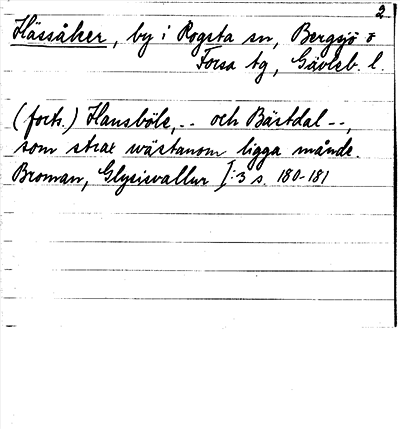 2.
Hässåker, by i Rogsta sn, Bergsjö o
Forsa tg, Gävleb. l.
(forts.) Hansböle, -- och Bästdal --,
som strax wästanom ligga månde.
Broman, Glysisvallur I:3 s. 180-181